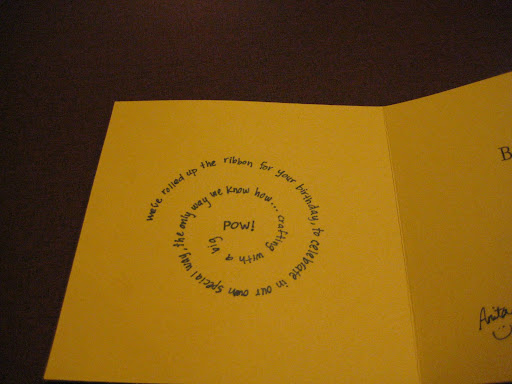 we've rolled up the ribbon for your birthday, to celebrate in our own special way, the only way we know how... crafting with a big
POW!
B
Anita